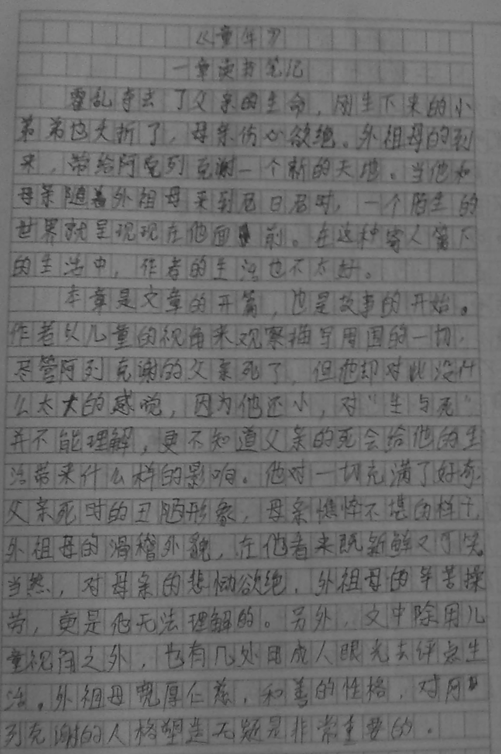 《童年》
一章读书笔记
霍乱夺去了父亲的生命，刚生下来的小
弟弟也夭折了，母亲伤心欲绝。外祖母的到
来，带给阿克列克谢一个新的天地。当他和
母亲随着外祖母来到尼日尼时，一个陌生的
世界就呈现现在他面前。在这种寄人篱下
的生活中，作者的生活也不太好。
本章是文章的开篇，也是故事的开始。
作者以儿童的视角来观察描写周围的一切，
尽管阿列克谢的父亲死了，但他却对此没什
么太大的感觉，因为他还小，对“生与死”
并不能理解，更不知道父亲的死会给他的生
活带来什么样的影响。他对一切充满了好奇
父亲死时的丑陋形象，母亲憔悴不堪的样子，
外祖母的滑稽外貌，在他看来既新鲜又可笑
当然，对母亲的悲恸欲绝，外祖母的辛苦操
劳，更是他无法理解的。另外，文中除用儿
童视角之外，也有几处用成人眼光去评定生
活。外祖母宽厚仁慈，和善的性格，对阿
列克谢的人格塑造无疑是非常重要的。